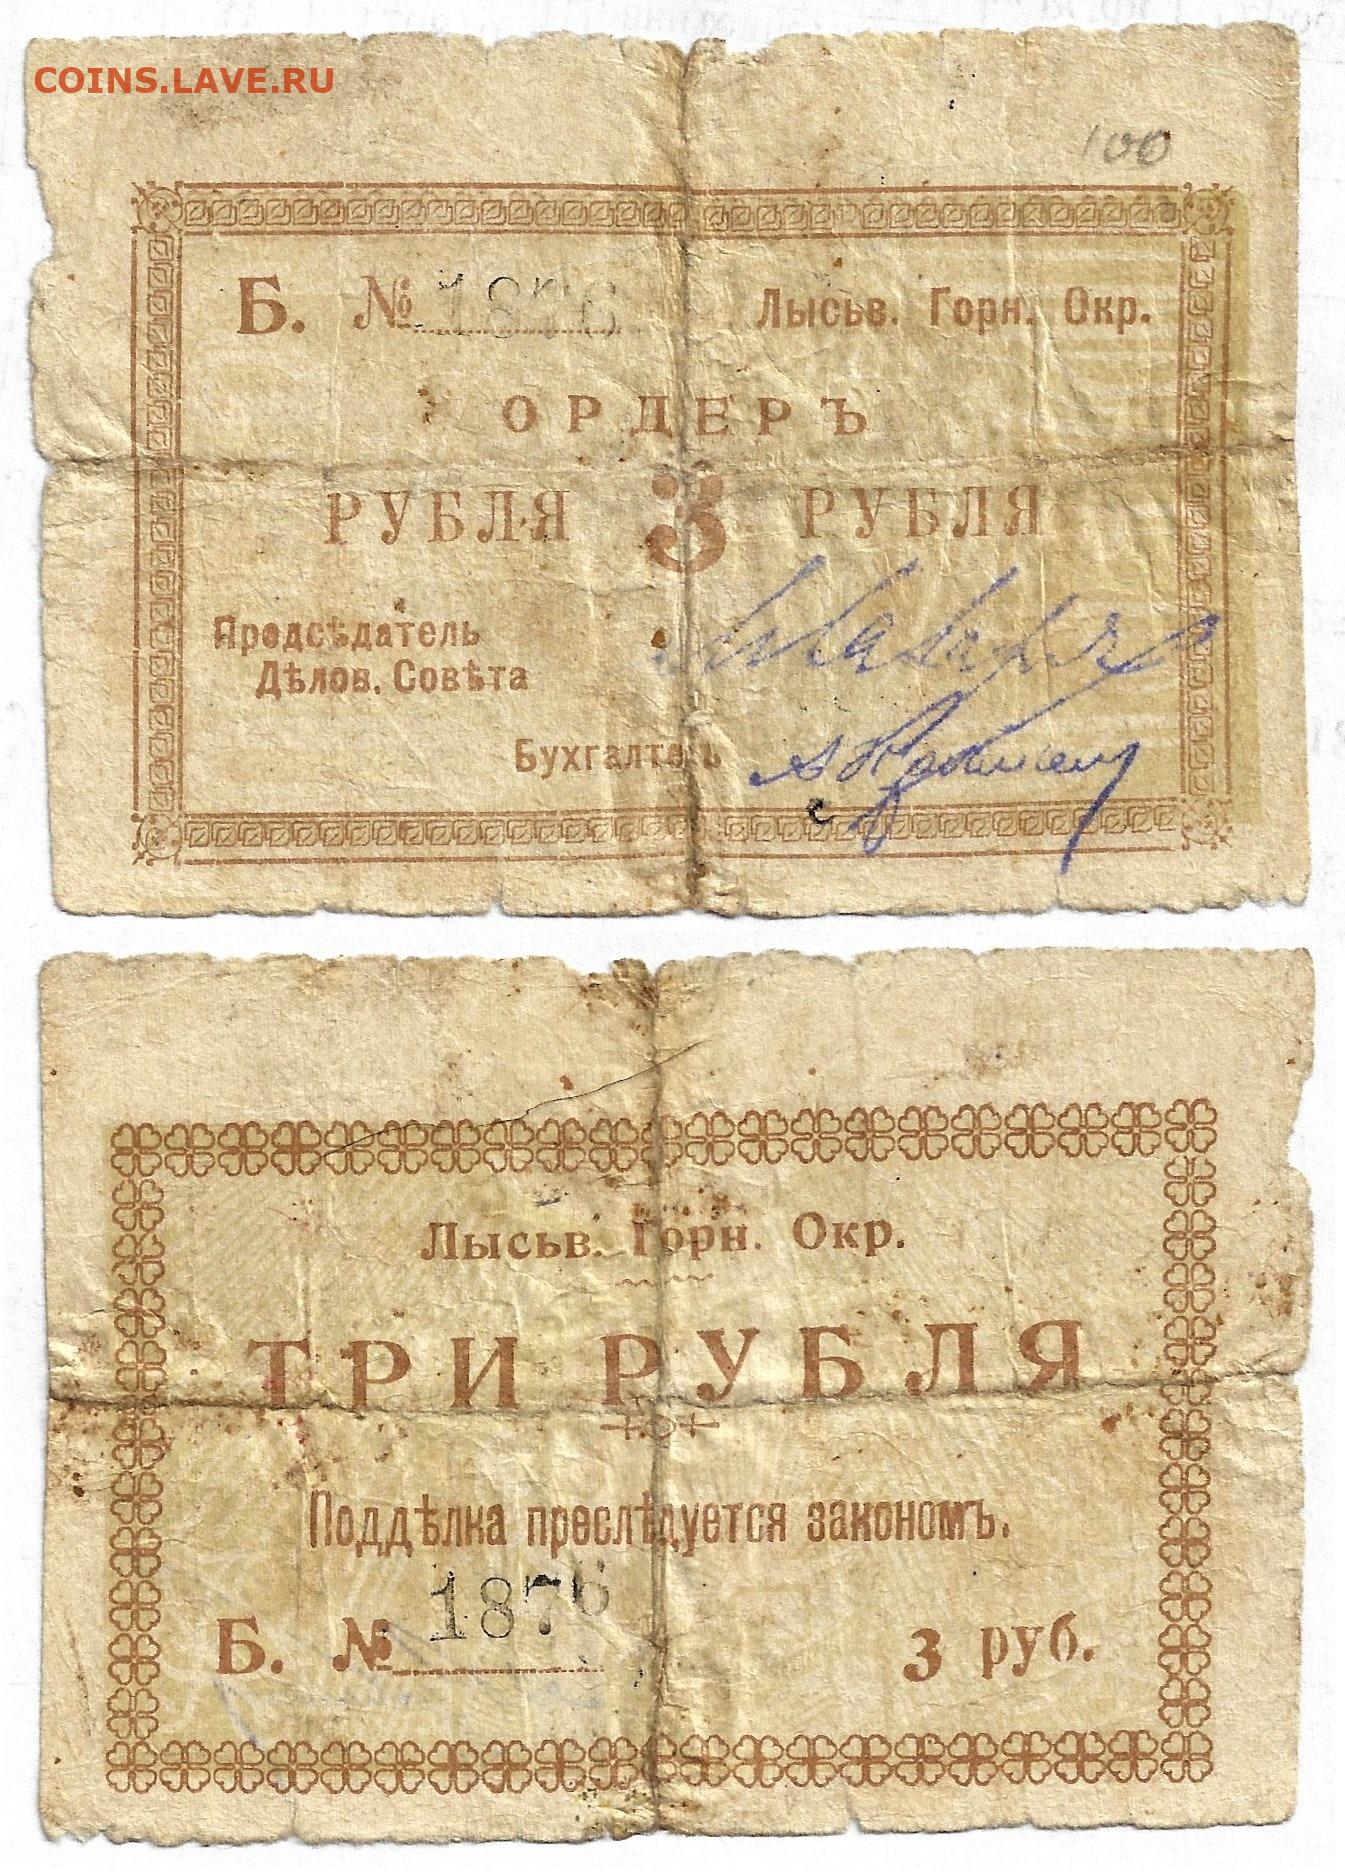 COINS.LAVE.RU
100
Б. № 1876 Лысьв. Горн. Окр.
ОРДЕРЪ
РУБЛЯ 3 РУБЛЯ
Предсѣдатель
Дѣлов. Совѣта
Бухгалтеръ
Лысьв. Горн. Окр.
ТРИ РУБЛЯ
Поддѣлка преслѣдуется закономъ.
Б. № 1876 3 руб.